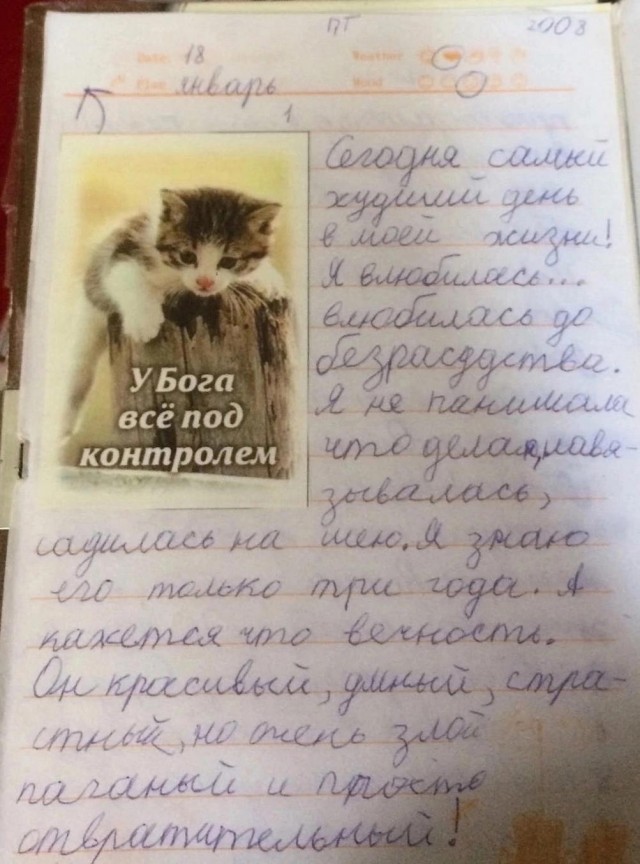 ПТ 2008
Date: 18 Weather
январь Mood
1
Сегодня самый
худший день
в моей жизни!
Я влюбилась...
влюбилась до
безрасддства.
Я не панимала
что делаю, навя-
зывалась,
садилась на шею. Я знаю
его только три года. А
кажется что вечность.
Он красивый, умный, стра-
стный, но очень злой
паганый и просто
отвратительный!
У Бога
всё под
контролем